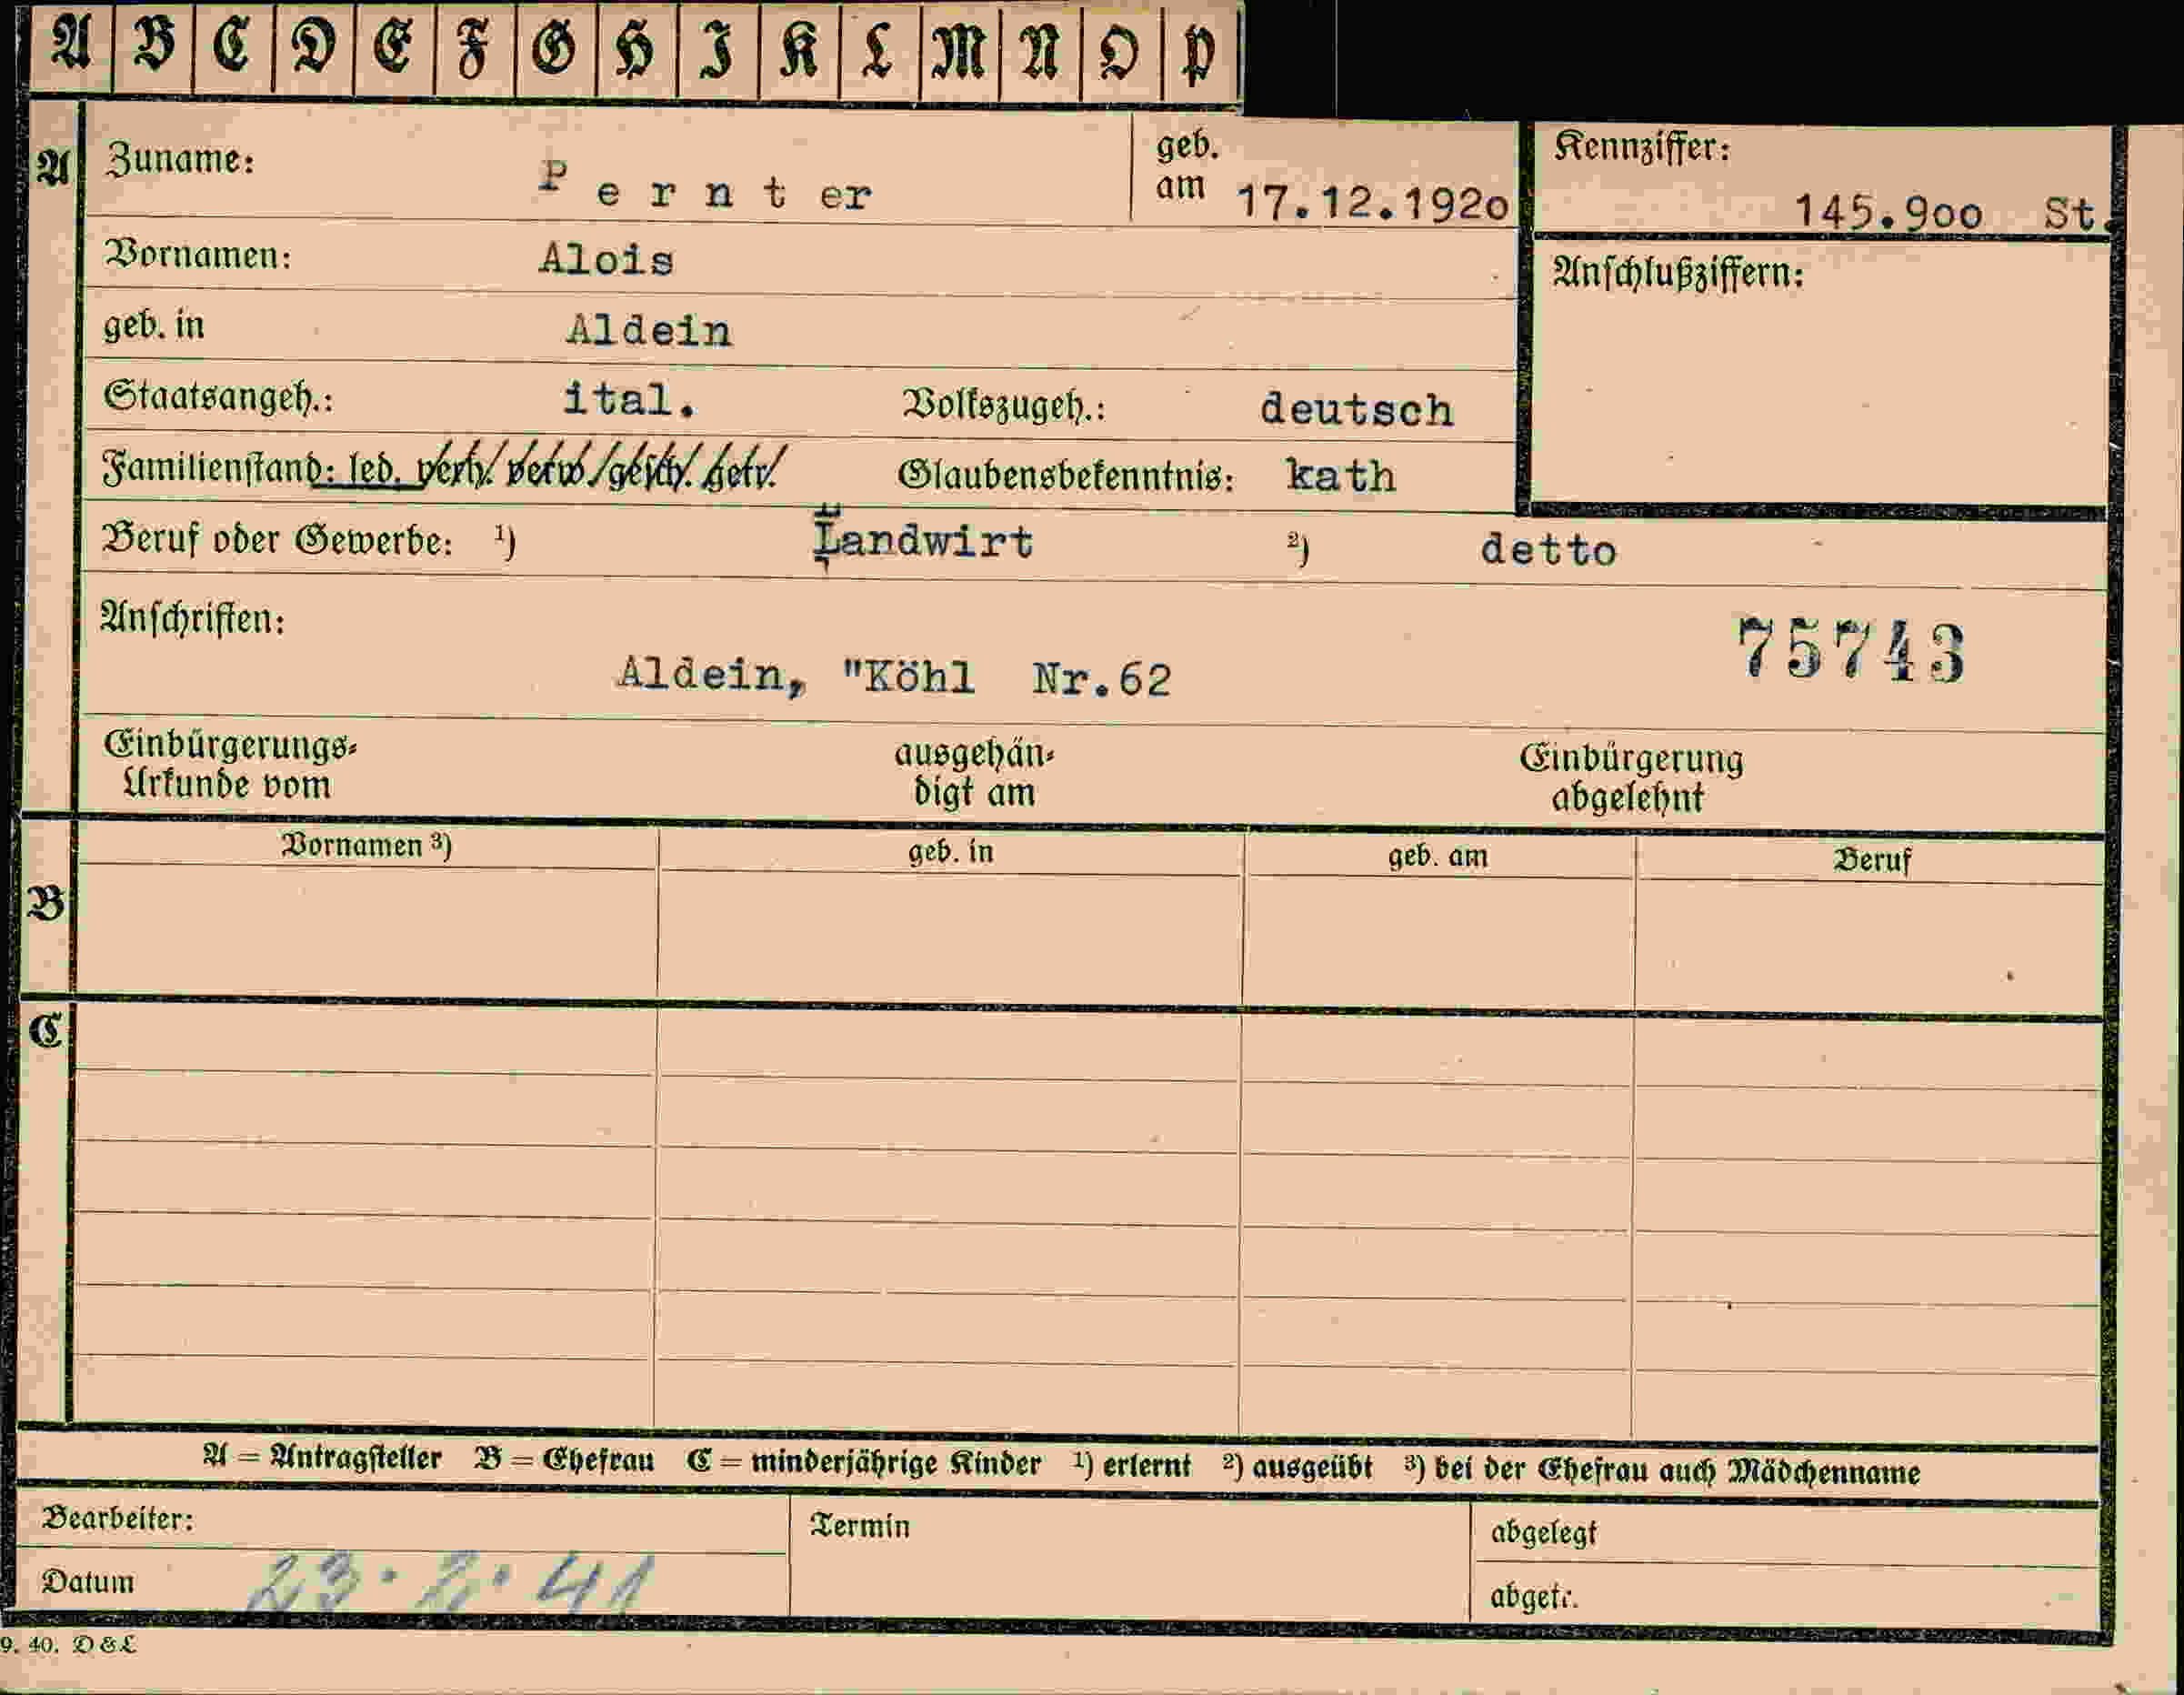 A B C D E F G H I K L M N O P
A Zuname: Pernter geb. am 17.12.1920 Kennziffer: 145.900 St.
Vornamen: Alois Anschlußziffern:
geb. in Aldein
Staatsangeh.: ital. Volkszugeh.: deutsch
Familienstand: led. verh. verw. gesch. getr. Glaubensbekenntnis: kath
Beruf oder Gewerbe: ¹) Landwirt ²) detto
Anschriften: 75743
Aldein, "Köhl Nr.62
Einbürgerungs- ausgehän- Einbürgerung
Urkunde vom digt am abgelehnt
Vornamen ³) geb. in geb. am Beruf
B
C
A = Antragsteller B = Ehefrau C = minderjährige Kinder ¹) erlernt ²) ausgeübt ³) bei der Ehefrau auch Mädchenname
Bearbeiter: Termin abgelegt
Datum 23. 2. 41 abgetr.
9. 40. D & L